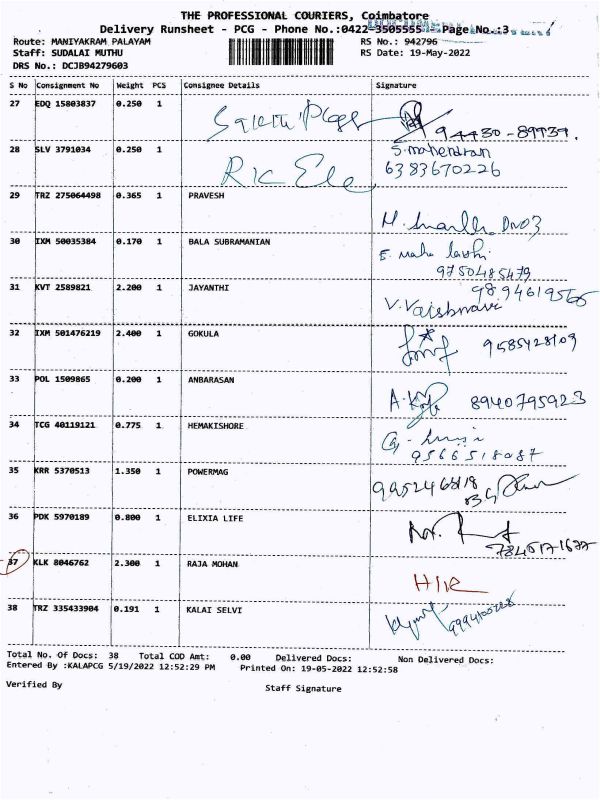 THE PROFESSIONAL COURIERS, Coimbatore
Delivery Runsheet - PCG - Phone No.:0422-3505555 - Page No.:3
Route: MANIYAKRAM PALAYAM
RS No.: 942796
Staff: SUDALAI MUTHU
RS Date: 19-May-2022
DRS No.: DCJB94279603
S No Consignment No Weight PCS Consignee Details Signature
27 EDQ 15803837 0.250 1
94430-89939.
28 SLV 3791034 0.250 1 Ric Ele S. mahendran
6383670226
29 TRZ 275064498 0.365 1 PRAVESH
30 IXM 50035384 0.170 1 BALA SUBRAMANIAN
9750485479
31 KVT 2589821 2.200 1 JAYANTHI
V. Vaishnavi
32 IXM 501476219 2.400 1 GOKULA
9585428109
33 POL 1509865 0.200 1 ANBARASAN
8940795923
34 TCG 40119121 0.775 1 HEMAKISHORE
9566518087
35 KRR 5370513 1.350 1 POWERMAG
36 PDK 5970189 0.800 1 ELIXIA LIFE
37 KLK 8046762 2.300 1 RAJA MOHAN
38 TRZ 335433904 0.191 1 KALAI SELVI
Total No. Of Docs: 38 Total COD Amt: 0.00 Delivered Docs: Non Delivered Docs:
Entered By :KALAPCG 5/19/2022 12:52:29 PM Printed On: 19-05-2022 12:52:58
Verified By Staff Signature